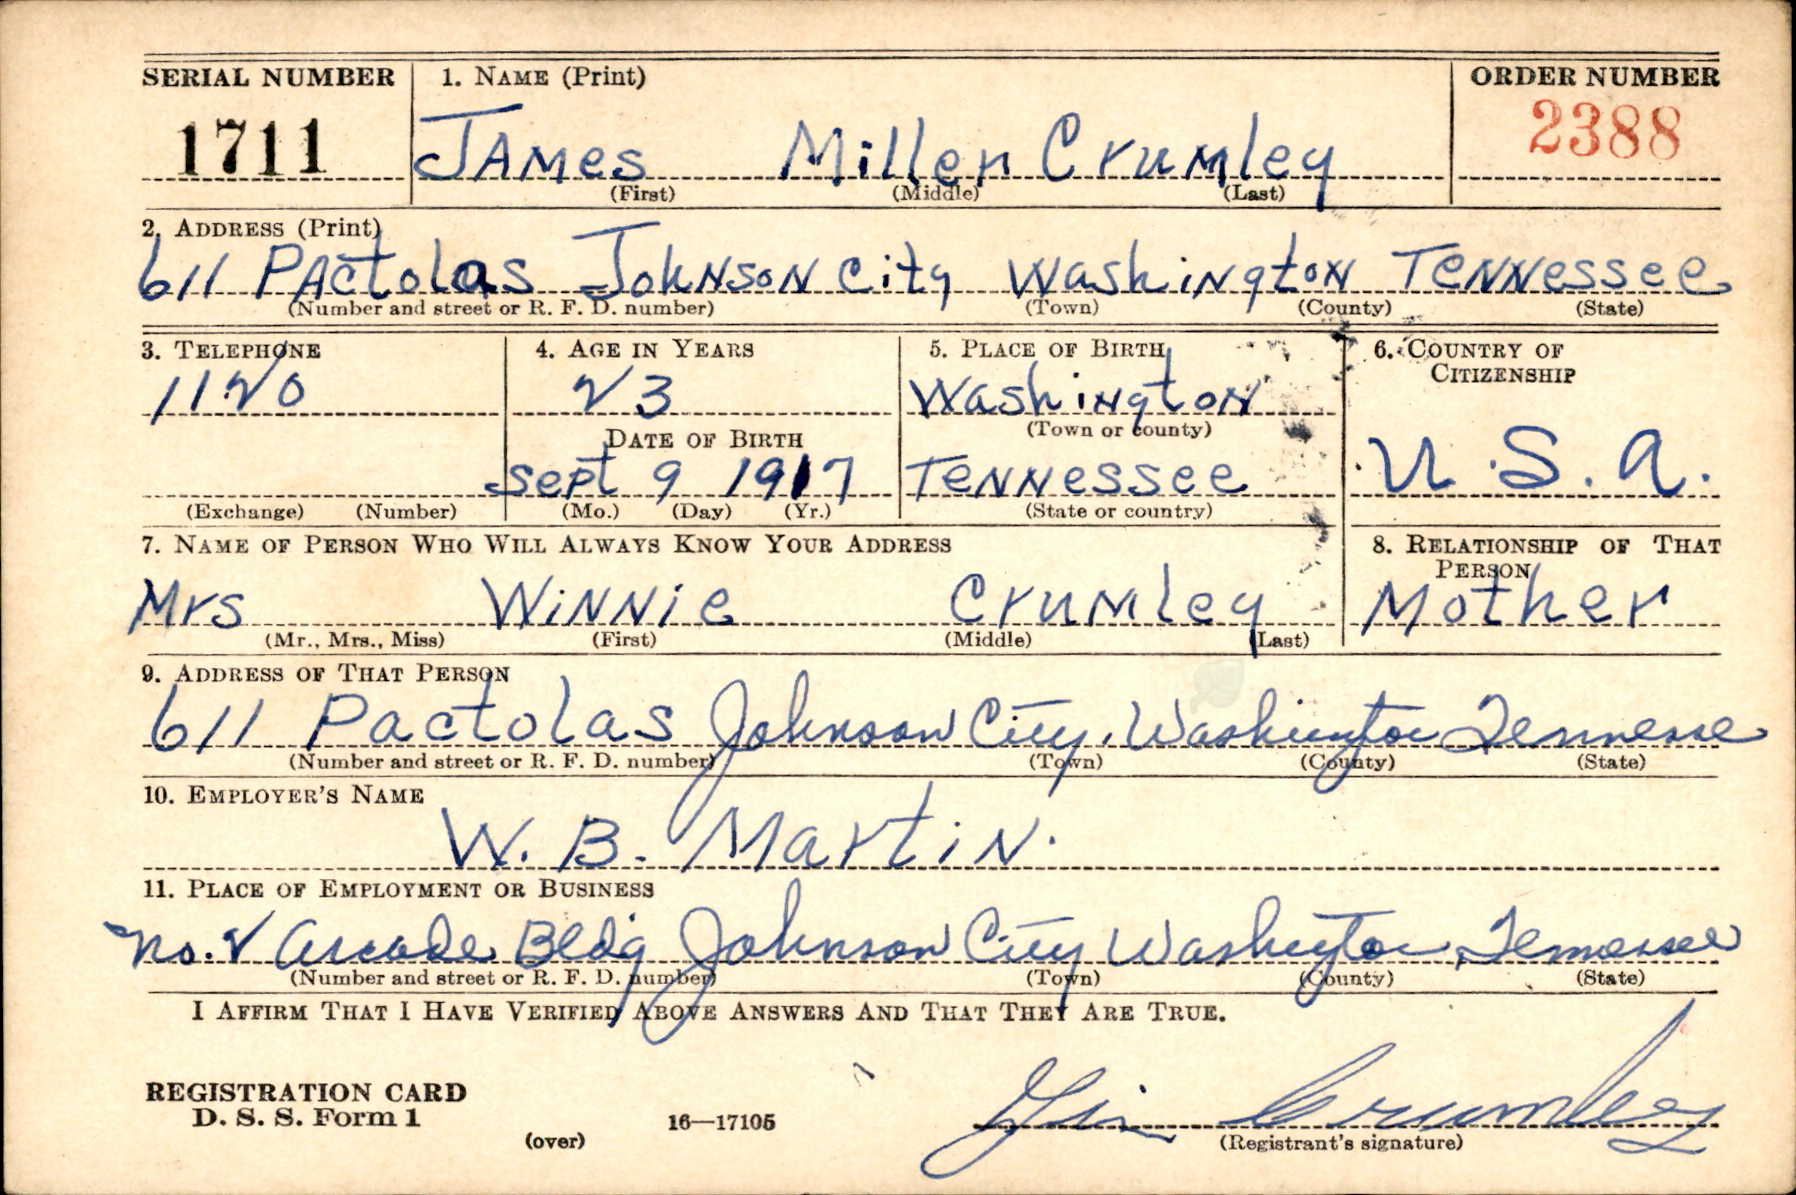 SERIAL NUMBER 1. NAME (Print) ORDER NUMBER
1711 JAMes Miller Crumley 2388
(First) (Middle) (Last)
2. ADDRESS (Print)
611 PActolas Johnson City Washington Tennessee
(Number and street or R. F. D. number) (Town) (County) (State)
3. TELEPHONE 4. AGE IN YEARS 5. PLACE OF BIRTH 6. COUNTRY OF
CITIZENSHIP
1120 23 Washington
DATE OF BIRTH (Town or county)
Sept 9 1917 Tennessee U.S.A.
(Exchange) (Number) (Mo.) (Day) (Yr.) (State or country)
7. NAME OF PERSON WHO WILL ALWAYS KNOW YOUR ADDRESS 8. RELATIONSHIP OF THAT
PERSON
Mrs Winnie Crumley Mother
(Mr., Mrs., Miss) (First) (Middle) (Last)
9. ADDRESS OF THAT PERSON
611 Pactolas Johnson City, Washington Tennesse
(Number and street or R. F. D. number) (Town) (County) (State)
10. EMPLOYER'S NAME
W. B. Martin.
11. PLACE OF EMPLOYMENT OR BUSINESS
No. 2 Arcade Bldg Johnson City Washington, Tennessee
(Number and street or R. F. D. number) (Town) (County) (State)
I AFFIRM THAT I HAVE VERIFIED ABOVE ANSWERS AND THAT THEY ARE TRUE.
REGISTRATION CARD
D. S. S. Form 1 16—17105 Jim Crumley
(over) (Registrant's signature)